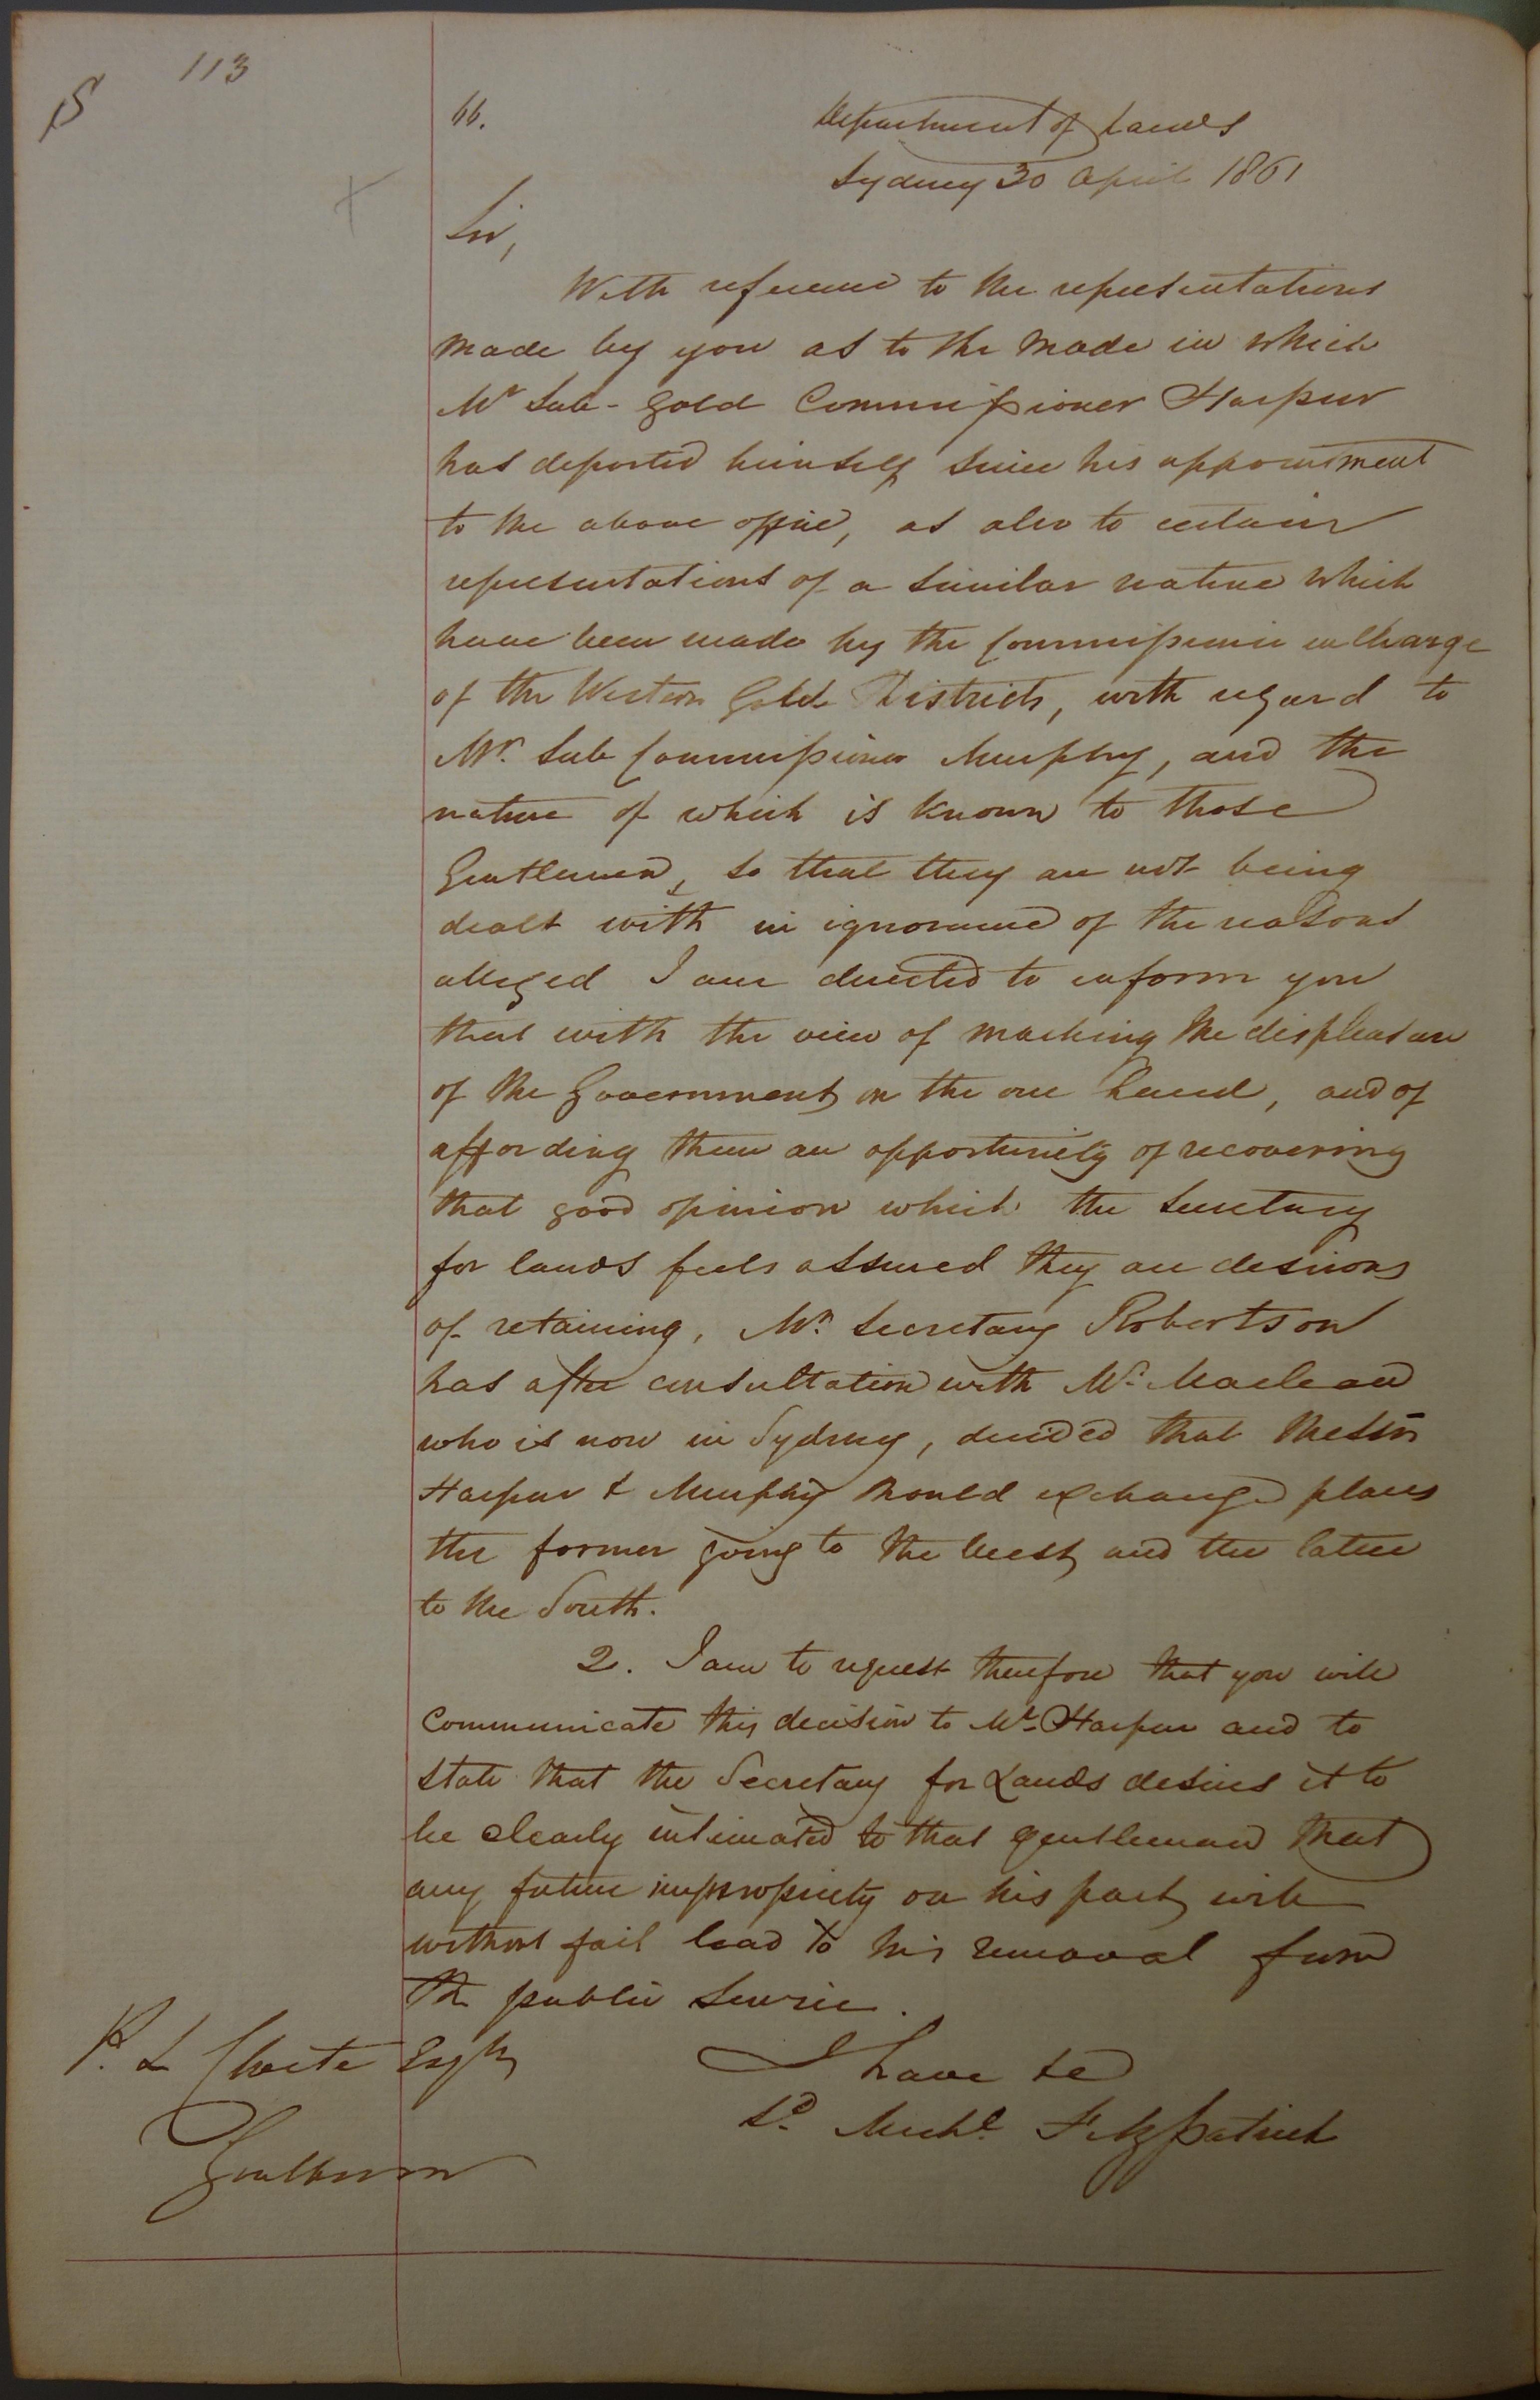 113
66.
Department of Lands
Sydney 30 April 1861
Sir,
With reference to the representations
made by you as to the mode in which
Mr Sub-Gold Commissioner Harpur
has deported himself since his appointment
to the above office, as also to certain
representations of a similar nature which
have been made by the Commissioner in Charge
of the Western Gold Districts, with regard to
Mr. Sub Commissioner Murphy, and the
nature of which is known to those
Gentlemen, so that they are not being
dealt with in ignorance of the reasons
alleged I am directed to inform you
that with the view of marking the displeasure
of the Government on the one hand, and of
affording them an opportunity of recovering
that good opinion which the Secretary
for Lands feels assured they are desirous
of retaining, Mr. Secretary Robertson
has after consultation with Mr. Maclean
who is now in Sydney, decided that Messrs
Harpur & Murphy should exchange places
the former going to the West and the latter
to the South.
2. I am to request therefore that you will
communicate this decision to Mr. Harpur and to
state that the Secretary for Lands desires it to
be clearly intimated to that gentleman that
any future impropriety on his part will
without fail lead to his removal from
the public service.
P. L. Cloete Esqre
I have &c
Sd. Michl. Fitzpatrick
Goulburn